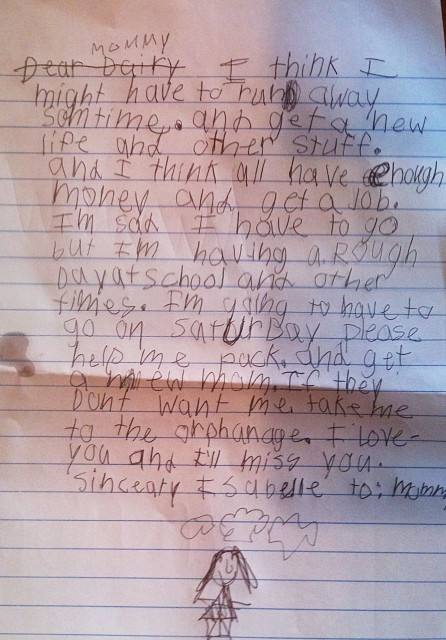 mommy
Dear Dairy I think I
might have to run away
somtime. and get a new
life and other stuff.
and I think all have enough
money and get a Job.
I'm sad I have to go
but I'm having a Rough
Day at school and other
times. I'm going to have to
go on saturBay please
help me pack. and get
a new mom. If they
Dont want me. take me
to the orphanage. I love
you and I'll miss you.
Sincealy Isabelle to: mommy